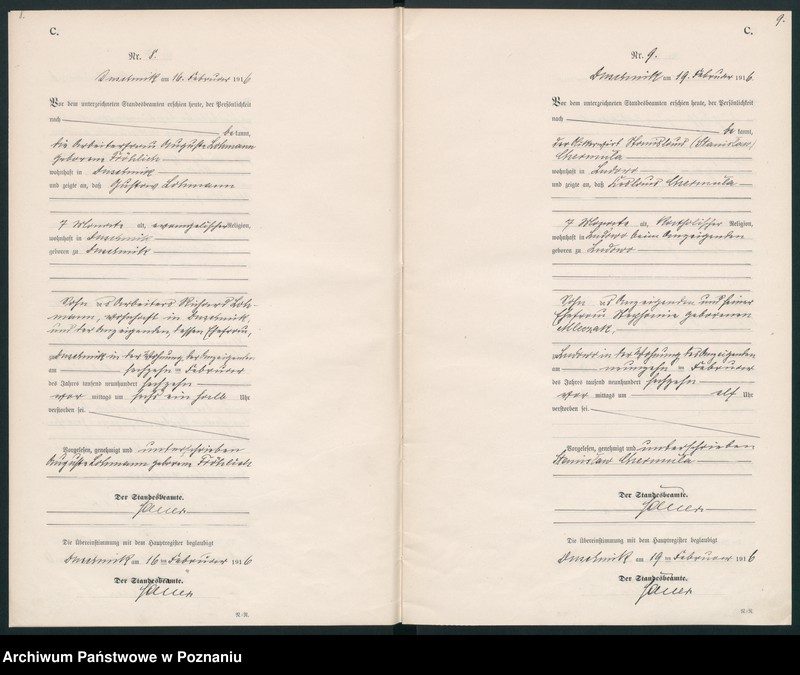 1.
C.
Nr. 8.
am 16. Februar 1916
Vor dem unterzeichneten Standesbeamten erschien heute, der Persönlichkeit
nach
be kannt,
die Arbeiterfrau Auguste Lohmann
geborene Fröhlich
wohnhaft in
und zeigte an, daß Gustav Lohmann
7 Monate alt, evangelischer Religion,
wohnhaft in
geboren zu
Sohn des Arbeiters Richard Loh-
mann, wohnhaft in
und der Anzeigenden, dessen Ehefrau,
zu in der Wohnung der Anzeigenden
am sechzehn ten Februar
des Jahres tausend neunhundert sechzehn
vor mittags um sechs ein halb Uhr
verstorben sei.
Vorgelesen, genehmigt und unterschrieben
Auguste Lohmann geborene Fröhlich
Der Standesbeamte.
Die Übereinstimmung mit dem Hauptregister beglaubigt
am 16 ten Februar 1916
Der Standesbeamte.
N.-N.
9.
C.
Nr. 9.
am 19. Februar 1916.
Vor dem unterzeichneten Standesbeamten erschien heute, der Persönlichkeit
nach
be kannt,
der Stanislaus (Stanislaw)
wohnhaft in Ludowo
und zeigte an, daß
7 Monate alt, katholischer Religion,
wohnhaft in Ludowo beim Anzeigenden
geboren zu Ludowo
Sohn des Anzeigenden und seiner
Ehefrau geborenen
Ludowo in der Wohnung des Anzeigenden
am neunzehn ten Februar
des Jahres tausend neunhundert sechzehn
vor mittags um elf Uhr
verstorben sei.
Vorgelesen, genehmigt und unterschrieben
Stanislaw
Der Standesbeamte.
Die Übereinstimmung mit dem Hauptregister beglaubigt
am 19 ten Februar 1916
Der Standesbeamte.
N.-N.
Archiwum Państwowe w Poznaniu